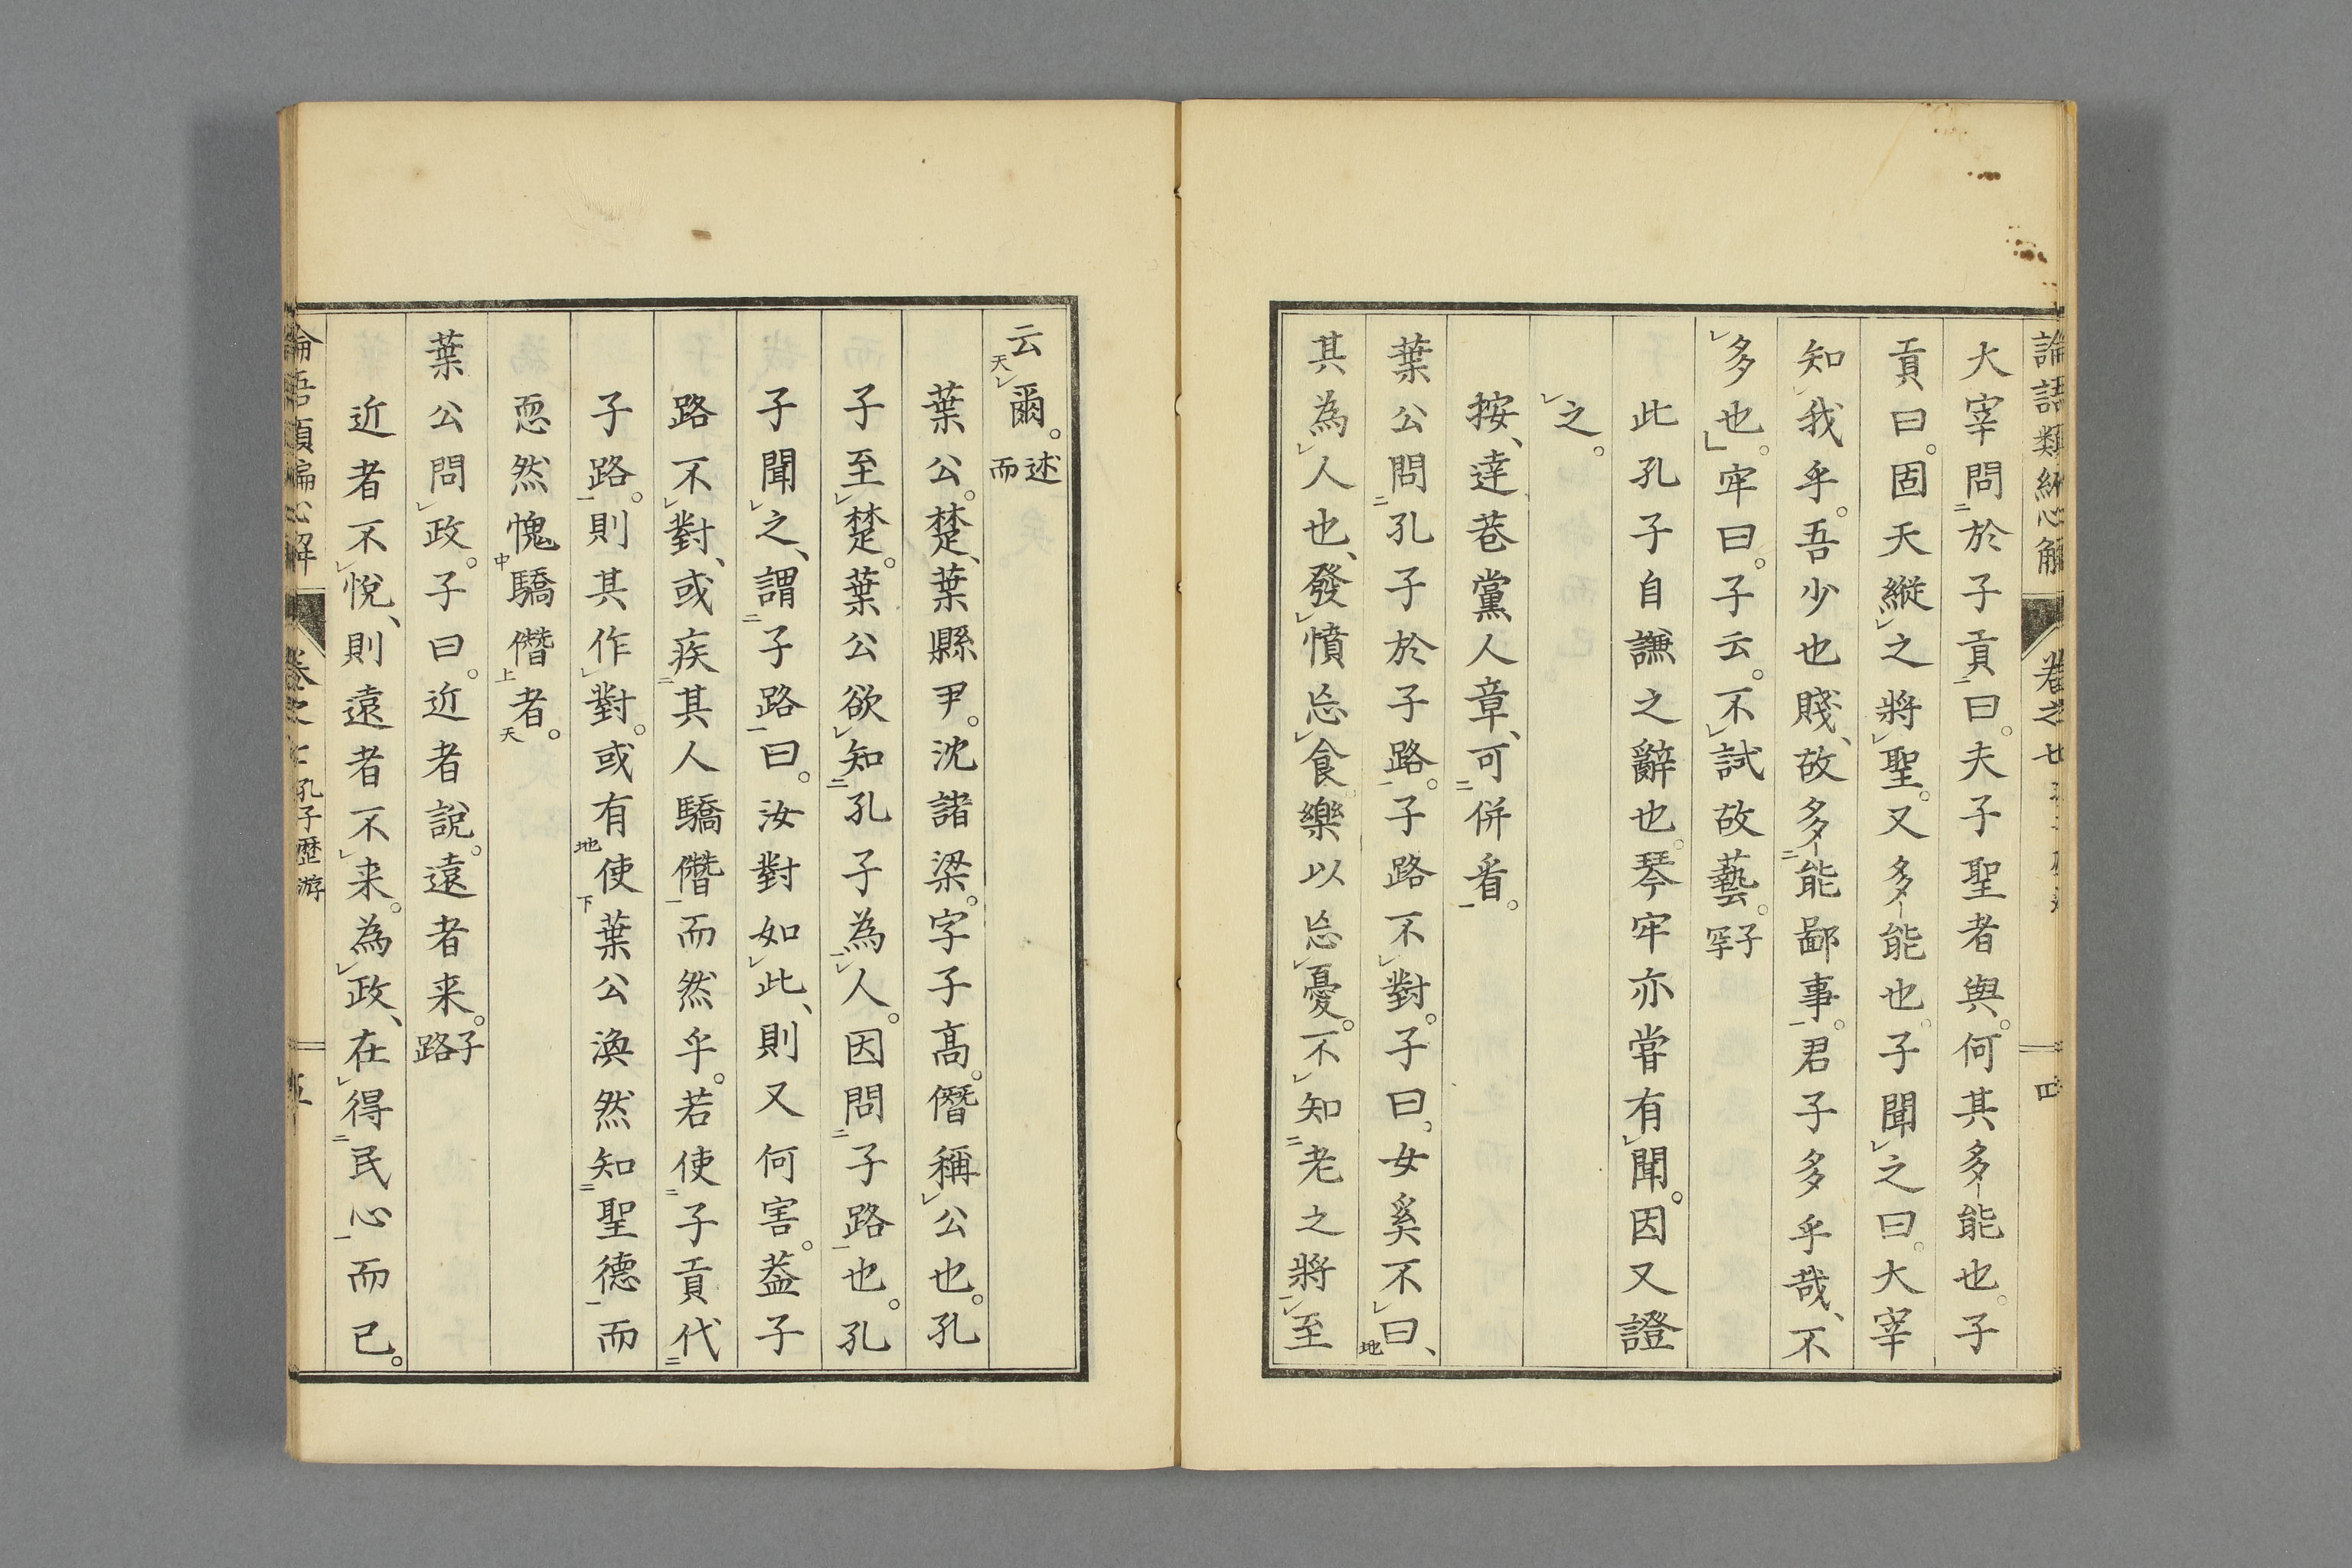 論語類編心解 卷之七 四
大宰問於子貢曰。夫子聖者與。何其多能也。子
貢曰。固天縱之將聖。又多能也。子聞之曰。大宰
知我乎。吾少也賤、故多能鄙事。君子多乎哉、不
多也。牢曰。子云。不試故藝。子罕
此孔子自謙之辭也。琴牢亦嘗有聞。因又證
之。
按、達巷黨人章、可併看。
葉公問孔子於子路。子路不對。子曰、女奚不曰、
其為人也、發憤忘食樂以忘憂。不知老之將至
云爾。述而
葉公。楚、葉縣尹。沈諸梁。字子高。僭稱公也。孔
子至楚。葉公欲知孔子為人。因問子路也。孔
子聞之、謂子路曰。汝對如此、則又何害。蓋子
路不對、或疾其人驕僭而然乎。若使子貢代
子路。則其作對。或有使葉公渙然知聖德而
恧然愧驕僭者。
葉公問政。子曰。近者說。遠者来。子路
近者不悅、則遠者不来。為政、在得民心而已。
論語類編心解 卷之七 孔子歷游 五